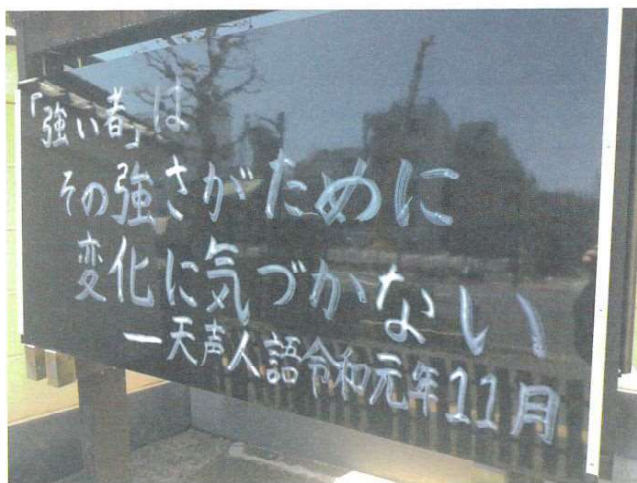 「強い者」は
その強さがために
変化に気づかない
ー天声人語令和元年11月